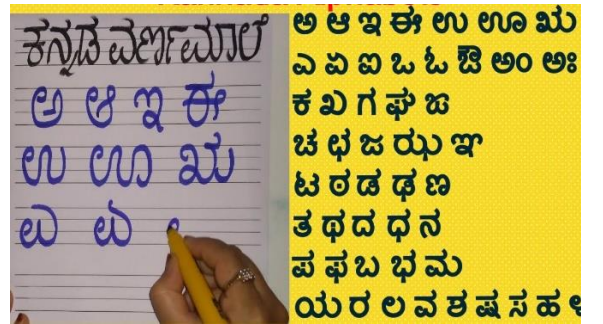 ಕನ್ನಡ ವರ್ಣಮಾಲೆ
ಅ ಆ ಇ ಈ
ಉ ಊ ಋ
ಎ ಏ
ಅ ಆ ಇ ಈ ಉ ಊ ಋ
ಎ ಏ ಐ ಒ ಓ ಔ ಅಂ ಅಃ
ಕ ಖ ಗ ಘ ಙ
ಚ ಛ ಜ ಝ ಞ
ಟ ಠ ಡ ಢ ಣ
ತ ಥ ದ ಧ ನ
ಪ ಫ ಬ ಭ ಮ
ಯ ರ ಲ ವ ಶ ಷ ಸ ಹ